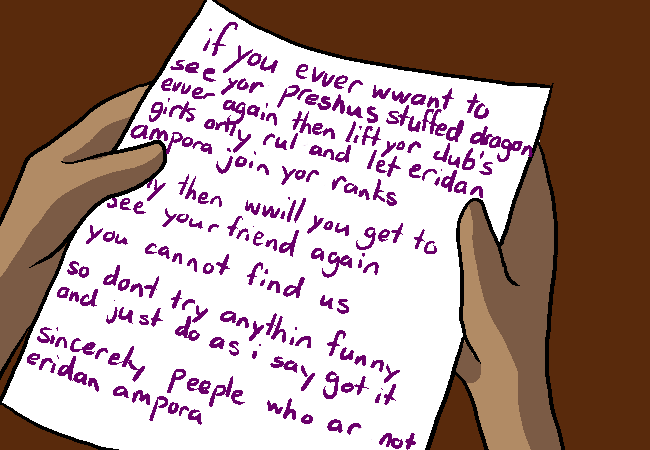 if you evver wwant to
see yor preshus stuffed dragon
evver again then lift yor club's
girls only rul and let eridan
ampora join yor ranks
then wwill you get to
see your friend again
you cannot find us
so dont try anythin funny
and just do as i say got it
sincerely peeple who ar not
eridan ampora